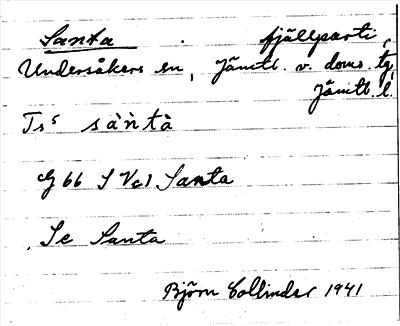 Santa fjällparti,
Undersåkers sn, Jämtl. v. doms. tg,
Jämtl. l.
Ts⁵ sàǹtà
G 66 S Vcl Santa
Se Santa
Björn Collinder 1941